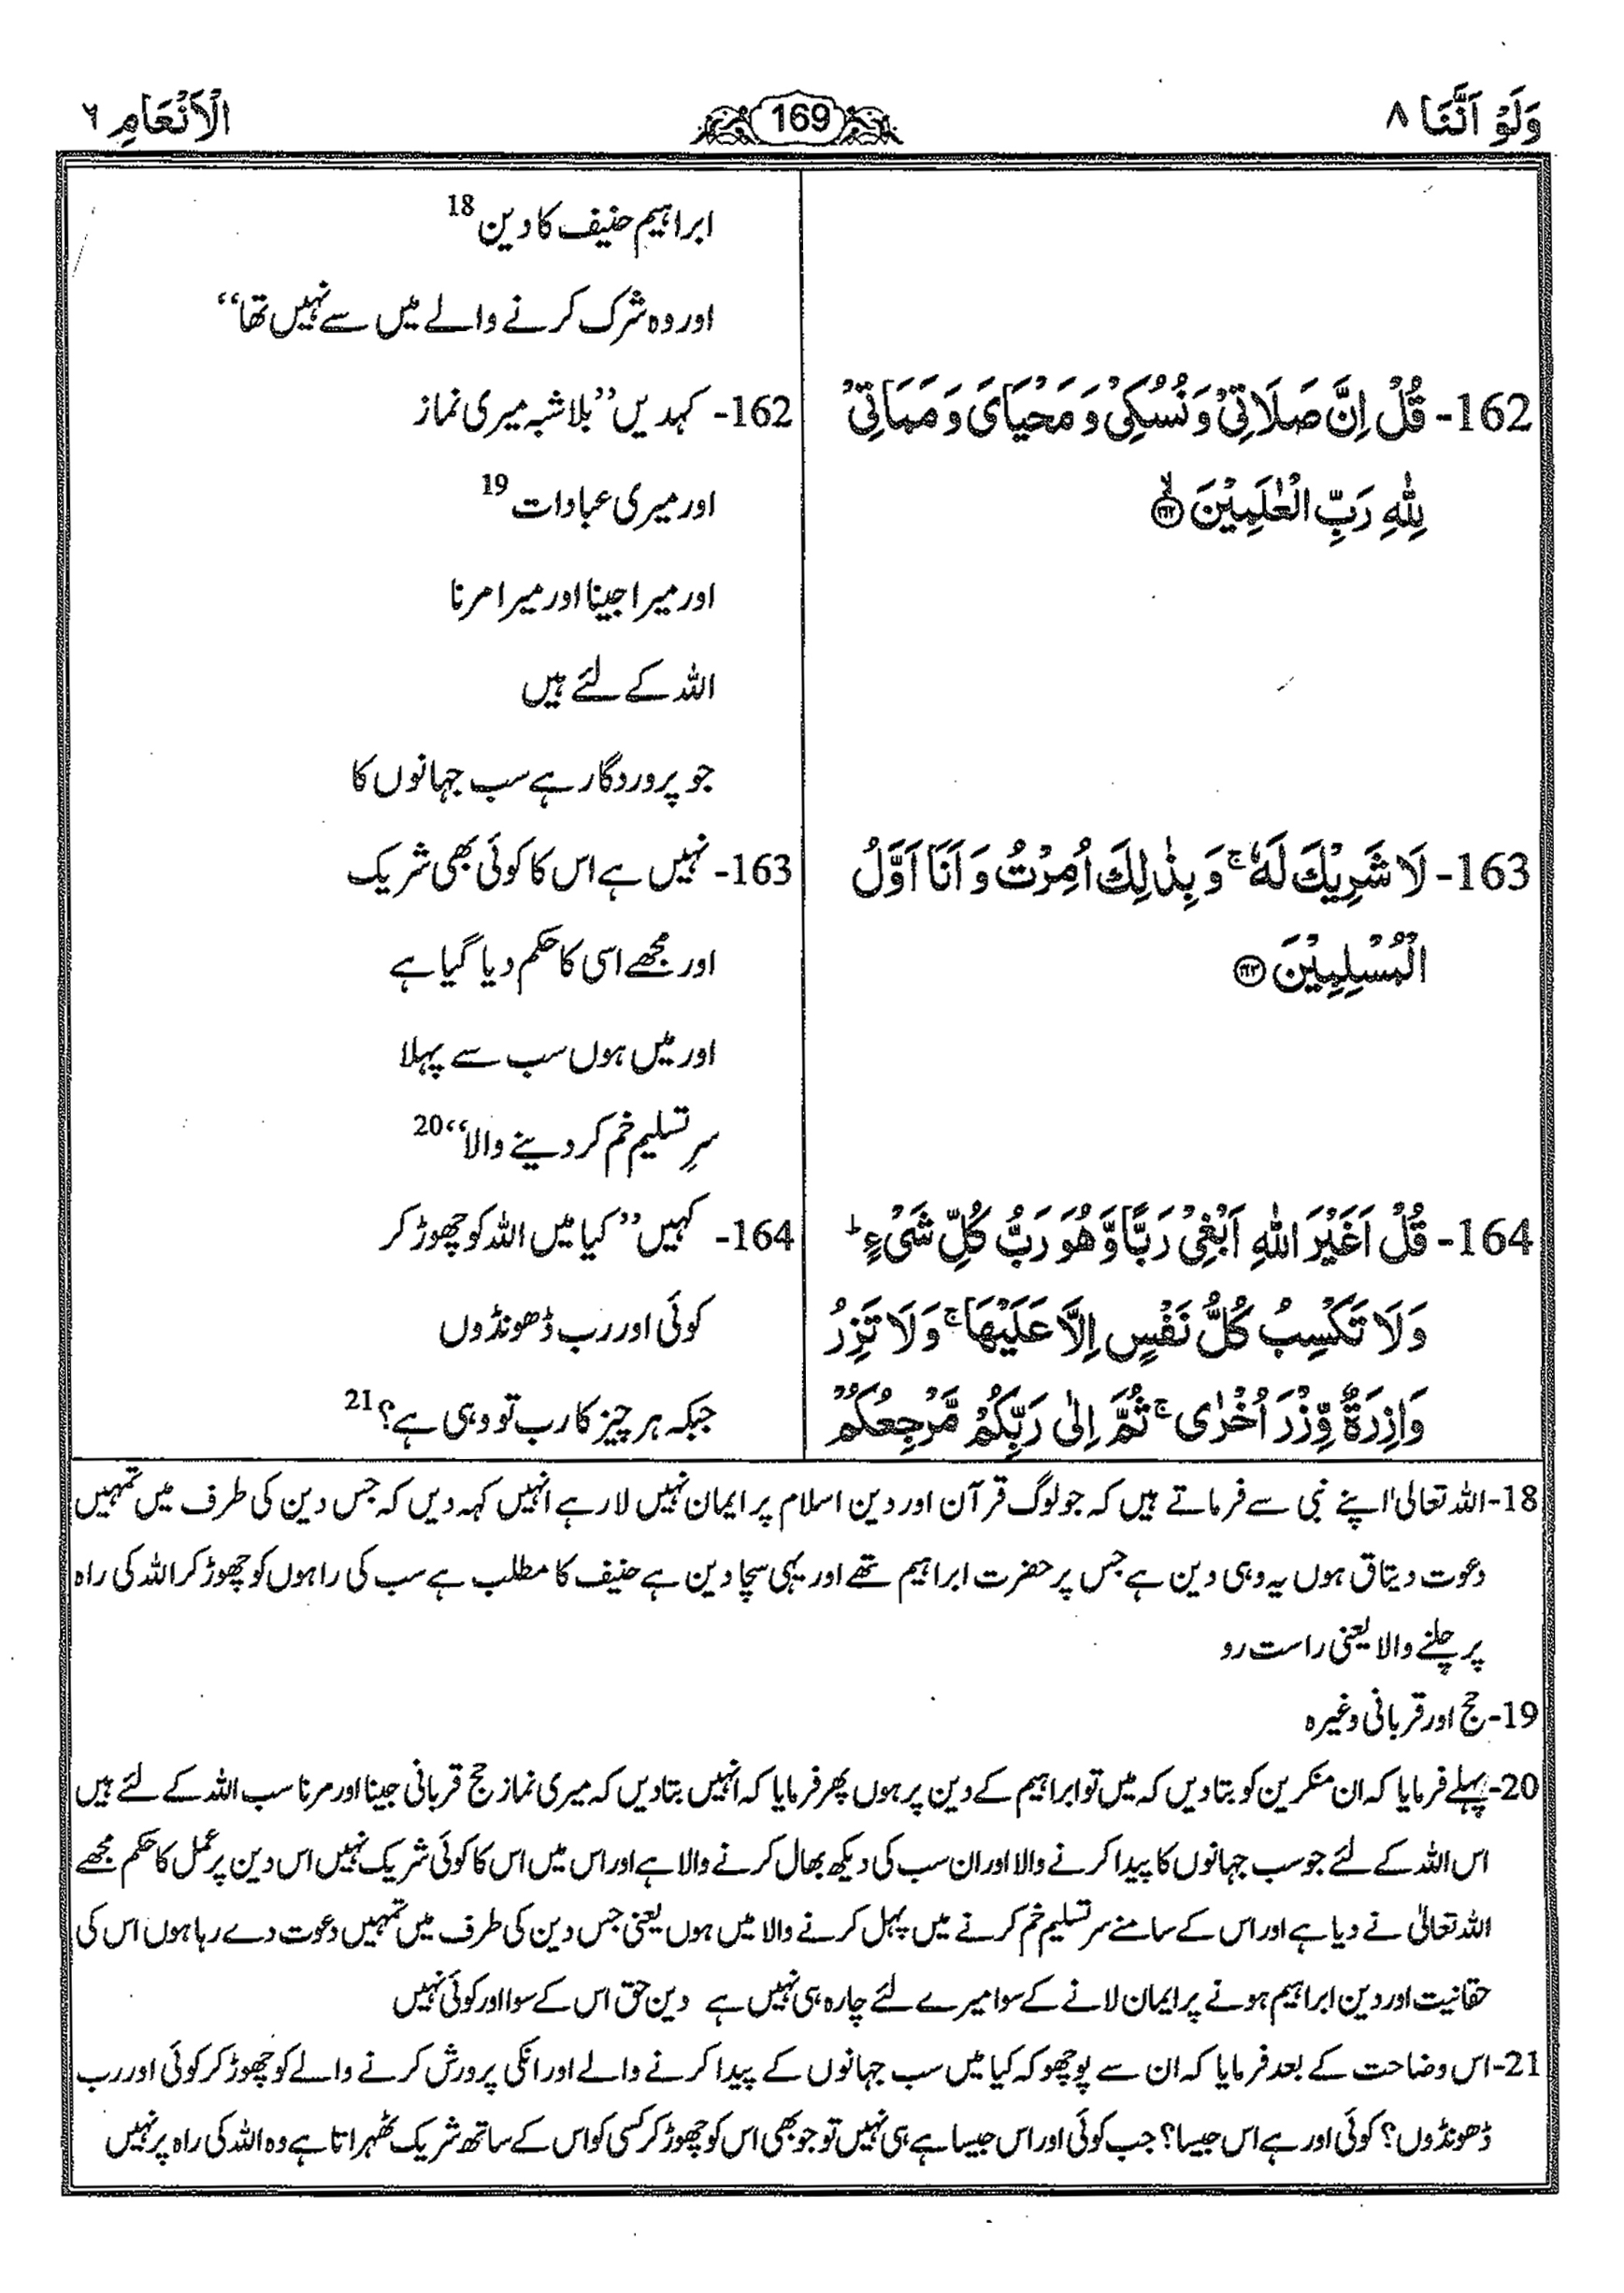 وَلَوْ اَنَّنَا ۸
169
الْاَنْعَامِ ۶
ابراہیم حنیف کا دین 18
اور وہ شرک کرنے والے میں سے نہیں تھا“
162- قُلْ اِنَّ صَلَاتِیْ وَنُسُكِیْ وَ مَحْیَایَ وَ مَمَاتِیْ
لِلّٰهِ رَبِّ الْعٰلَمِیْنَ ۙ﴿۱۶۲﴾
162- کہدیں ”بلا شبہ میری نماز
اور میری عبادات 19
اور میرا جینا اور میرا مرنا
اللہ کے لئے ہیں
جو پروردگار ہے سب جہانوں کا
163- لَا شَرِیْكَ لَهٗ ۚ وَ بِذٰلِكَ اُمِرْتُ وَ اَنَا اَوَّلُ
الْمُسْلِمِیْنَ ﴿۱۶۳﴾
163- نہیں ہے اس کا کوئی بھی شریک
اور مجھے اسی کا حکم دیا گیا ہے
اور میں ہوں سب سے پہلا
سرِ تسلیم خم کر دینے والا“ 20
164- قُلْ اَغَیْرَ اللّٰهِ اَبْغِیْ رَبًّا وَّ هُوَ رَبُّ كُلِّ شَیْءٍ ؕ
وَ لَا تَكْسِبُ كُلُّ نَفْسٍ اِلَّا عَلَیْهَا ۚ وَ لَا تَزِرُ
وَازِرَةٌ وِّزْرَ اُخْرٰی ۚ ثُمَّ اِلٰی رَبِّكُمْ مَّرْجِعُكُمْ
164- کہیں ”کیا میں اللہ کو چھوڑ کر
کوئی اور رب ڈھونڈوں
جبکہ ہر چیز کا رب تو وہی ہے؟ 21
18- اللہ تعالیٰ اپنے نبی سے فرماتے ہیں کہ جو لوگ قرآن اور دین اسلام پر ایمان نہیں لا رہے انہیں کہہ دیں کہ جس دین کی طرف میں تمہیں
دعوت دیتاق ہوں یہ وہی دین ہے جس پر حضرت ابراہیم تھے اور یہی سچا دین ہے حنیف کا مطلب ہے سب کی راہوں کو چھوڑ کر اللہ کی راہ
پر چلنے والا یعنی راست رو
19- حج اور قربانی وغیرہ
20- پہلے فرمایا کہ ان منکرین کو بتا دیں کہ میں تو ابراہیم کے دین پر ہوں پھر فرمایا کہ انہیں بتا دیں کہ میری نماز حج قربانی جینا اور مرنا سب اللہ کے لئے ہیں
اس اللہ کے لئے جو سب جہانوں کا پیدا کرنے والا اور ان سب کی دیکھ بھال کرنے والا ہے اور اس میں اس کا کوئی شریک نہیں اس دین پر عمل کا حکم مجھے
اللہ تعالیٰ نے دیا ہے اور اس کے سامنے سر تسلیم خم کرنے میں پہل کرنے والا میں ہوں یعنی جس دین کی طرف میں تمہیں دعوت دے رہا ہوں اس کی
حقانیت اور دین ابراہیم ہونے پر ایمان لانے کے سوا میرے لئے چارہ ہی نہیں ہے دین حق اس کے سوا اور کوئی نہیں
21- اس وضاحت کے بعد فرمایا کہ ان سے پوچھو کہ کیا میں سب جہانوں کے پیدا کرنے والے اور انکی پرورش کرنے والے کو چھوڑ کر کوئی اور رب
ڈھونڈوں؟ کوئی اور ہے اس جیسا؟ جب کوئی اور اس جیسا ہے ہی نہیں تو جو بھی اس کو چھوڑ کر کسی کو اس کے ساتھ شریک ٹھہراتا ہے وہ اللہ کی راہ پر نہیں